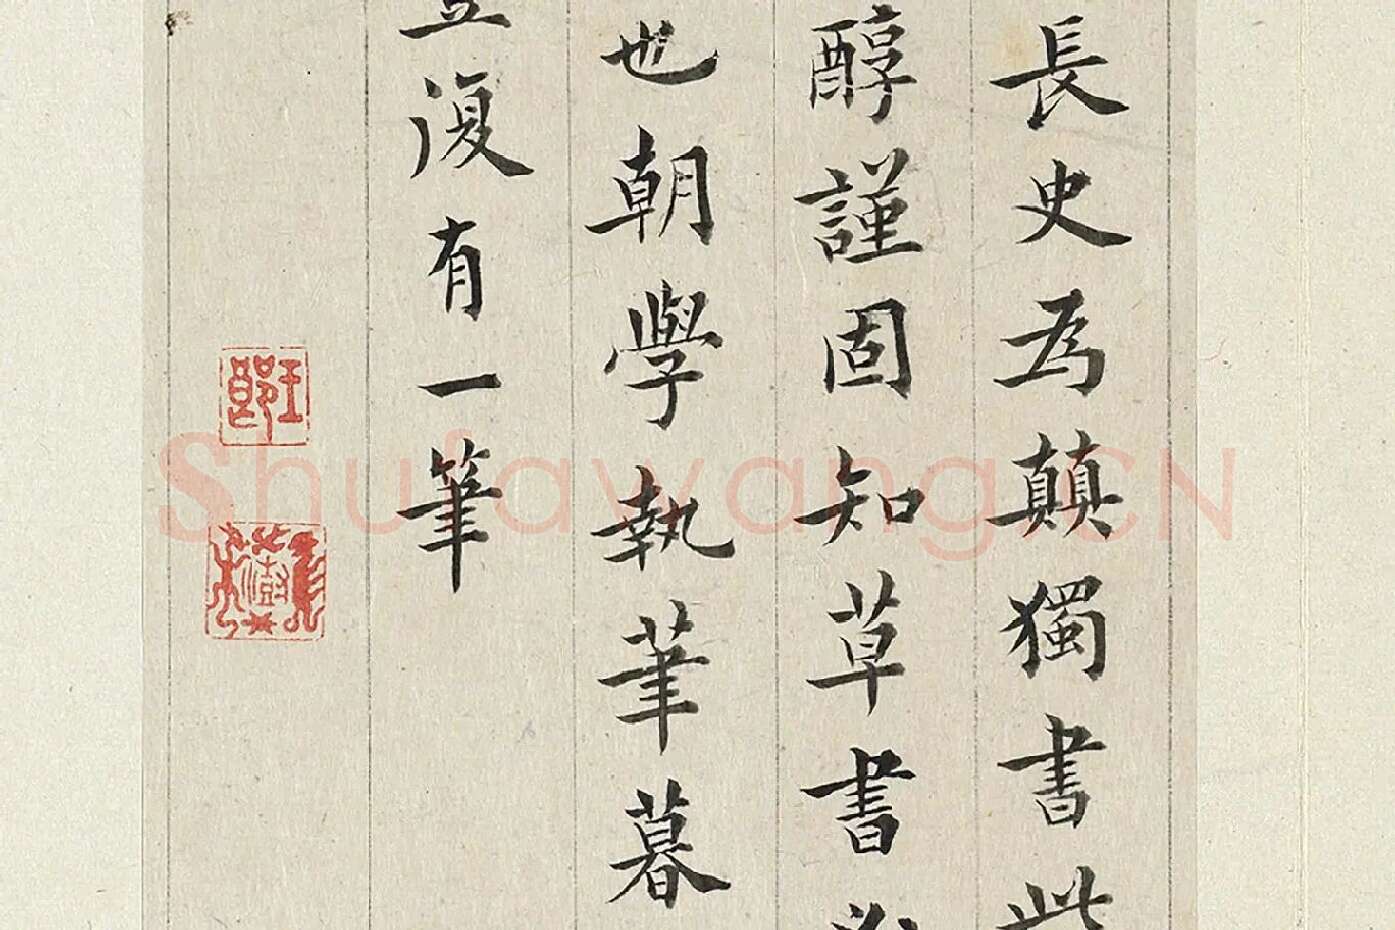 長史為顛獨書此
醇謹固知草書
也朝學執筆暮
復有一筆
王澍
Shufawang.CN